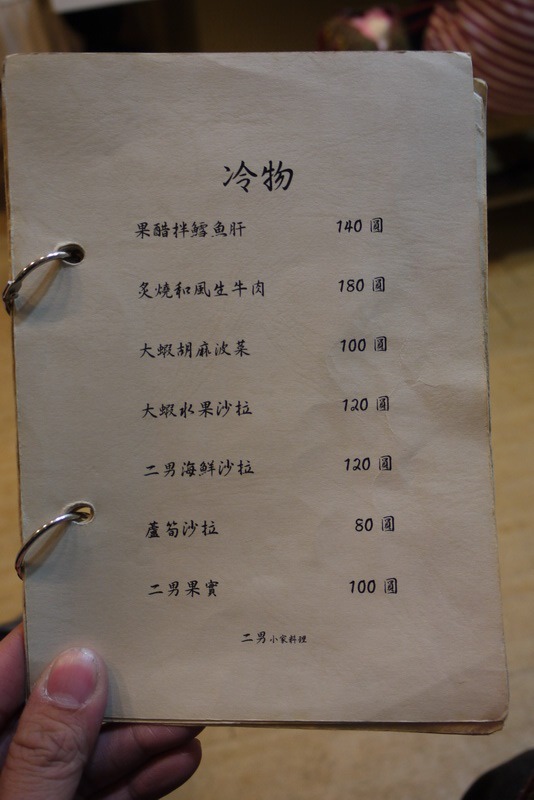 冷物
果醋拌鱈魚肝 140 圓
炙燒和風生牛肉 180 圓
大蝦胡麻波菜 100 圓
大蝦水果沙拉 120 圓
二男海鮮沙拉 120 圓
蘆筍沙拉 80 圓
二男果實 100 圓
二男小家料理